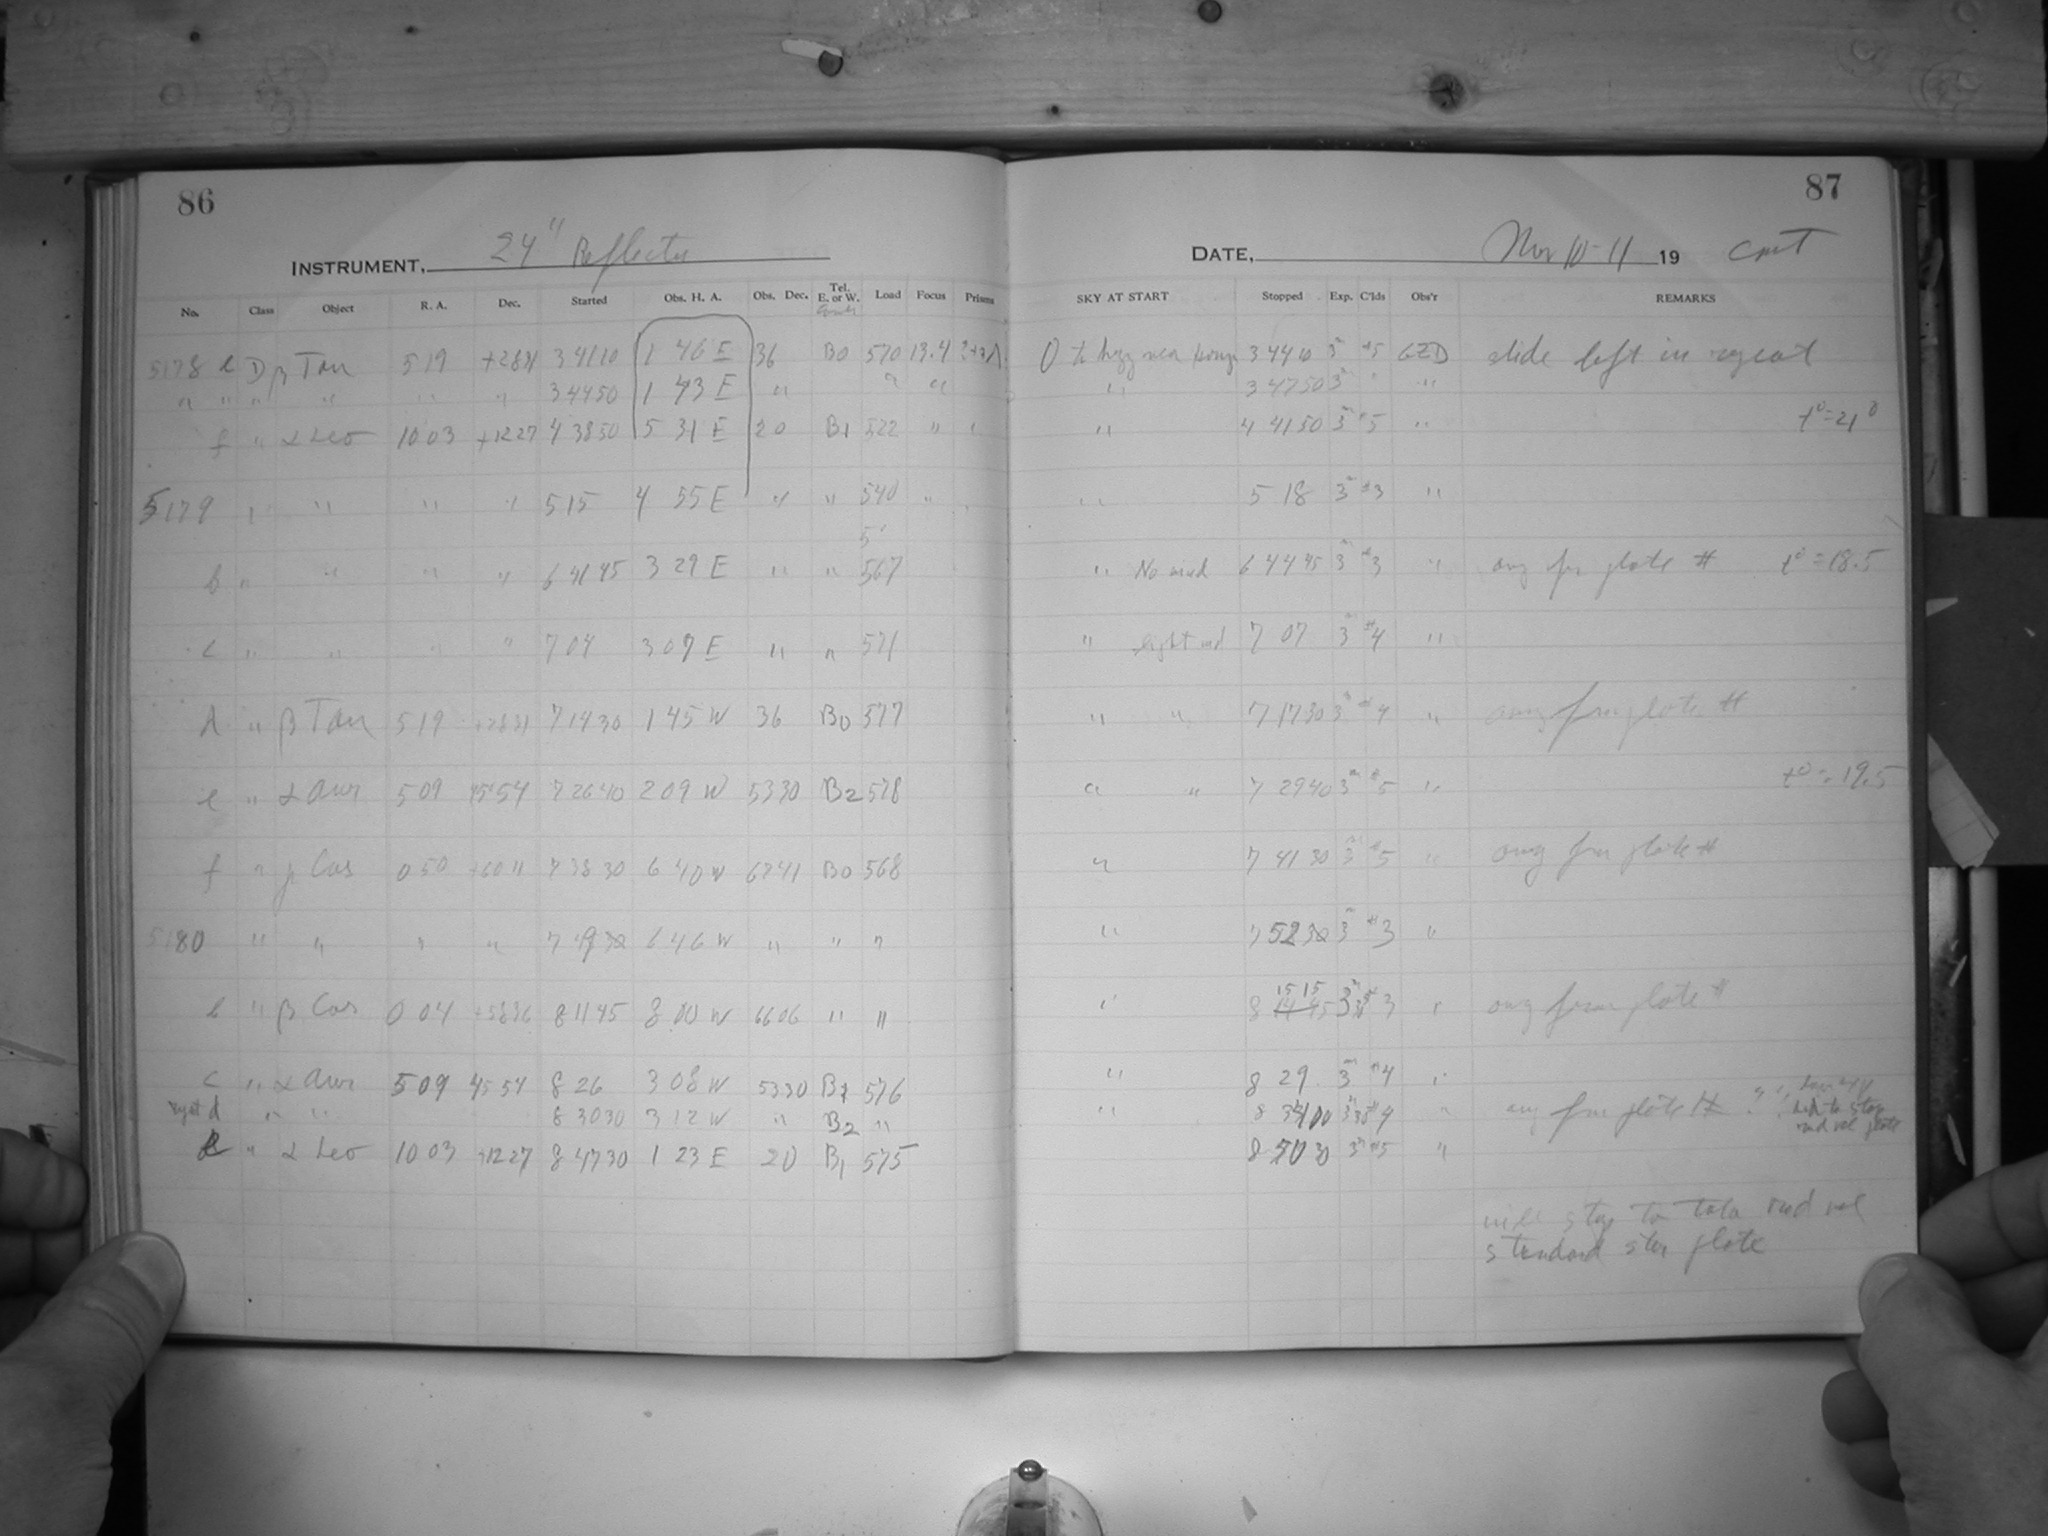 86
INSTRUMENT, 24" Reflector
No. Class Object R. A. Dec. Started Obs. H. A. Obs. Dec. Tel. E. or W. Load Focus Prisms
5178 e D β Tau 5 19 +2831 3 41 10 1 46 E 36 B0 570 13.4
" " " " " " 3 44 50 1 43 E " " "
f " α Leo 10 03 +1227 4 38 50 5 31 E 20 B1 522 "
5179 " " " " 5 15 4 55 E " " 540 "
b " " " " 6 41 45 3 29 E " " 567
c " " " " 7 04 3 07 E " " 571
d " β Tau 5 19 +2831 7 14 30 1 45 W 36 B0 577
e " α Aur 5 09 4554 7 26 40 2 09 W 5330 B2 578
f " γ Cas 0 50 +6011 7 38 30 6 40 W 6741 B0 568
5180 " " " " 7 49 30 6 46 W " " "
b " β Cas 0 04 +5836 8 11 45 8 00 W 6606 " "
c " α Aur 5 09 45 54 8 26 3 08 W 5330 B1 576
d " " 8 30 30 3 12 W " B2 "
e " α Leo 10 03 +1227 8 47 30 1 23 E 20 B1 575
87
DATE, Nov 10-11 19 cont
SKY AT START Stopped Exp. C'lds Obs'r REMARKS
0 to hazy near 3 44 10 3m #5 GZD slide left in repeat
" 3 47 50 3m " "
" 4 41 50 3m #5 " t° = 21°
" 5 18 3m #3 "
" No wind 6 44 45 3m #3 " ang fm plate # t° = 18.5
" light wd 7 07 3m #4 "
" " 7 17 30 3m #4 " ang fm plate #
" " 7 29 40 3m #5 " t° = 19.5
" 7 41 30 3m #5 " ang fm plate #
" 7 52 30 3m #3 "
" 8 15 15 #3 " ang fm plate #
" 8 29 3m #4 "
" 8 34 00 #4 " ang fm plate #
8 50 30 3m #5 "
will stop to take rad vel
standard star plate